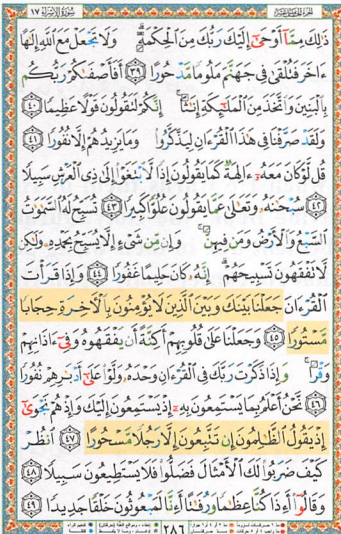 الجزء الخامس عشر سورة الإسراء ١٧
ذَٰلِكَ مِمَّآ أَوْحَىٰٓ إِلَيْكَ رَبُّكَ مِنَ ٱلْحِكْمَةِ ۗ وَلَا تَجْعَلْ مَعَ ٱللَّهِ إِلَٰهًا
ءَاخَرَ فَتُلْقَىٰ فِى جَهَنَّمَ مَلُومًا مَّدْحُورًا ٣٩ أَفَأَصْفَىٰكُمْ رَبُّكُم
بِٱلْبَنِينَ وَٱتَّخَذَ مِنَ ٱلْمَلَٰٓئِكَةِ إِنَٰثًا ۚ إِنَّكُمْ لَتَقُولُونَ قَوْلًا عَظِيمًا ٤٠
وَلَقَدْ صَرَّفْنَا فِى هَٰذَا ٱلْقُرْءَانِ لِيَذَّكَّرُوا۟ وَمَا يَزِيدُهُمْ إِلَّا نُفُورًا ٤١
قُل لَّوْ كَانَ مَعَهُۥٓ ءَالِهَةٌ كَمَا يَقُولُونَ إِذًا لَّٱبْتَغَوْا۟ إِلَىٰ ذِى ٱلْعَرْشِ سَبِيلًا
٤٢ سُبْحَٰنَهُۥ وَتَعَٰلَىٰ عَمَّا يَقُولُونَ عُلُوًّا كَبِيرًا ٤٣ تُسَبِّحُ لَهُ ٱلسَّمَٰوَٰتُ
ٱلسَّبْعُ وَٱلْأَرْضُ وَمَن فِيهِنَّ ۚ وَإِن مِّن شَىْءٍ إِلَّا يُسَبِّحُ بِحَمْدِهِۦ وَلَٰكِن
لَّا تَفْقَهُونَ تَسْبِيحَهُمْ ۗ إِنَّهُۥ كَانَ حَلِيمًا غَفُورًا ٤٤ وَإِذَا قَرَأْتَ
ٱلْقُرْءَانَ جَعَلْنَا بَيْنَكَ وَبَيْنَ ٱلَّذِينَ لَا يُؤْمِنُونَ بِٱلْءَاخِرَةِ حِجَابًا
مَّسْتُورًا ٤٥ وَجَعَلْنَا عَلَىٰ قُلُوبِهِمْ أَكِنَّةً أَن يَفْقَهُوهُ وَفِىٓ ءَاذَانِهِمْ
وَقْرًا ۚ وَإِذَا ذَكَرْتَ رَبَّكَ فِى ٱلْقُرْءَانِ وَحْدَهُۥ وَلَّوْا۟ عَلَىٰٓ أَدْبَٰرِهِمْ نُفُورًا
٤٦ نَّحْنُ أَعْلَمُ بِمَا يَسْتَمِعُونَ بِهِۦٓ إِذْ يَسْتَمِعُونَ إِلَيْكَ وَإِذْ هُمْ نَجْوَىٰٓ
إِذْ يَقُولُ ٱلظَّٰلِمُونَ إِن تَتَّبِعُونَ إِلَّا رَجُلًا مَّسْحُورًا ٤٧ ٱنظُرْ
كَيْفَ ضَرَبُوا۟ لَكَ ٱلْأَمْثَالَ فَضَلُّوا۟ فَلَا يَسْتَطِيعُونَ سَبِيلًا ٤٨
وَقَالُوٓا۟ أَءِذَا كُنَّا عِظَٰمًا وَرُفَٰتًا أَءِنَّا لَمَبْعُوثُونَ خَلْقًا جَدِيدًا ٤٩
٢٨٦